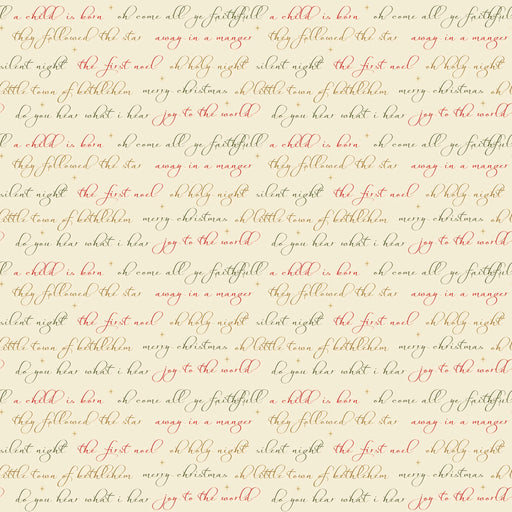 ll a child is born oh come all ye faithfull a child is born oh come all ye faithfull
they followed the star away in a manger they followed the star away in a manger
silent night the first noel oh holy night silent night the first noel oh holy night
little town of bethlehem merry christmas oh little town of bethlehem merry christmas oh
do you hear what i hear joy to the world do you hear what i hear joy to the world
ll a child is born oh come all ye faithfull a child is born oh come all ye faithfull
they followed the star away in a manger they followed the star away in a manger
silent night the first noel oh holy night silent night the first noel oh holy night
little town of bethlehem merry christmas oh little town of bethlehem merry christmas oh
do you hear what i hear joy to the world do you hear what i hear joy to the world
ll a child is born oh come all ye faithfull a child is born oh come all ye faithfull
they followed the star away in a manger they followed the star away in a manger
silent night the first noel oh holy night silent night the first noel oh holy night
little town of bethlehem merry christmas oh little town of bethlehem merry christmas oh
do you hear what i hear joy to the world do you hear what i hear joy to the world
ll a child is born oh come all ye faithfull a child is born oh come all ye faithfull
they followed the star away in a manger they followed the star away in a manger
silent night the first noel oh holy night silent night the first noel oh holy night
little town of bethlehem merry christmas oh little town of bethlehem merry christmas oh
do you hear what i hear joy to the world do you hear what i hear joy to the world